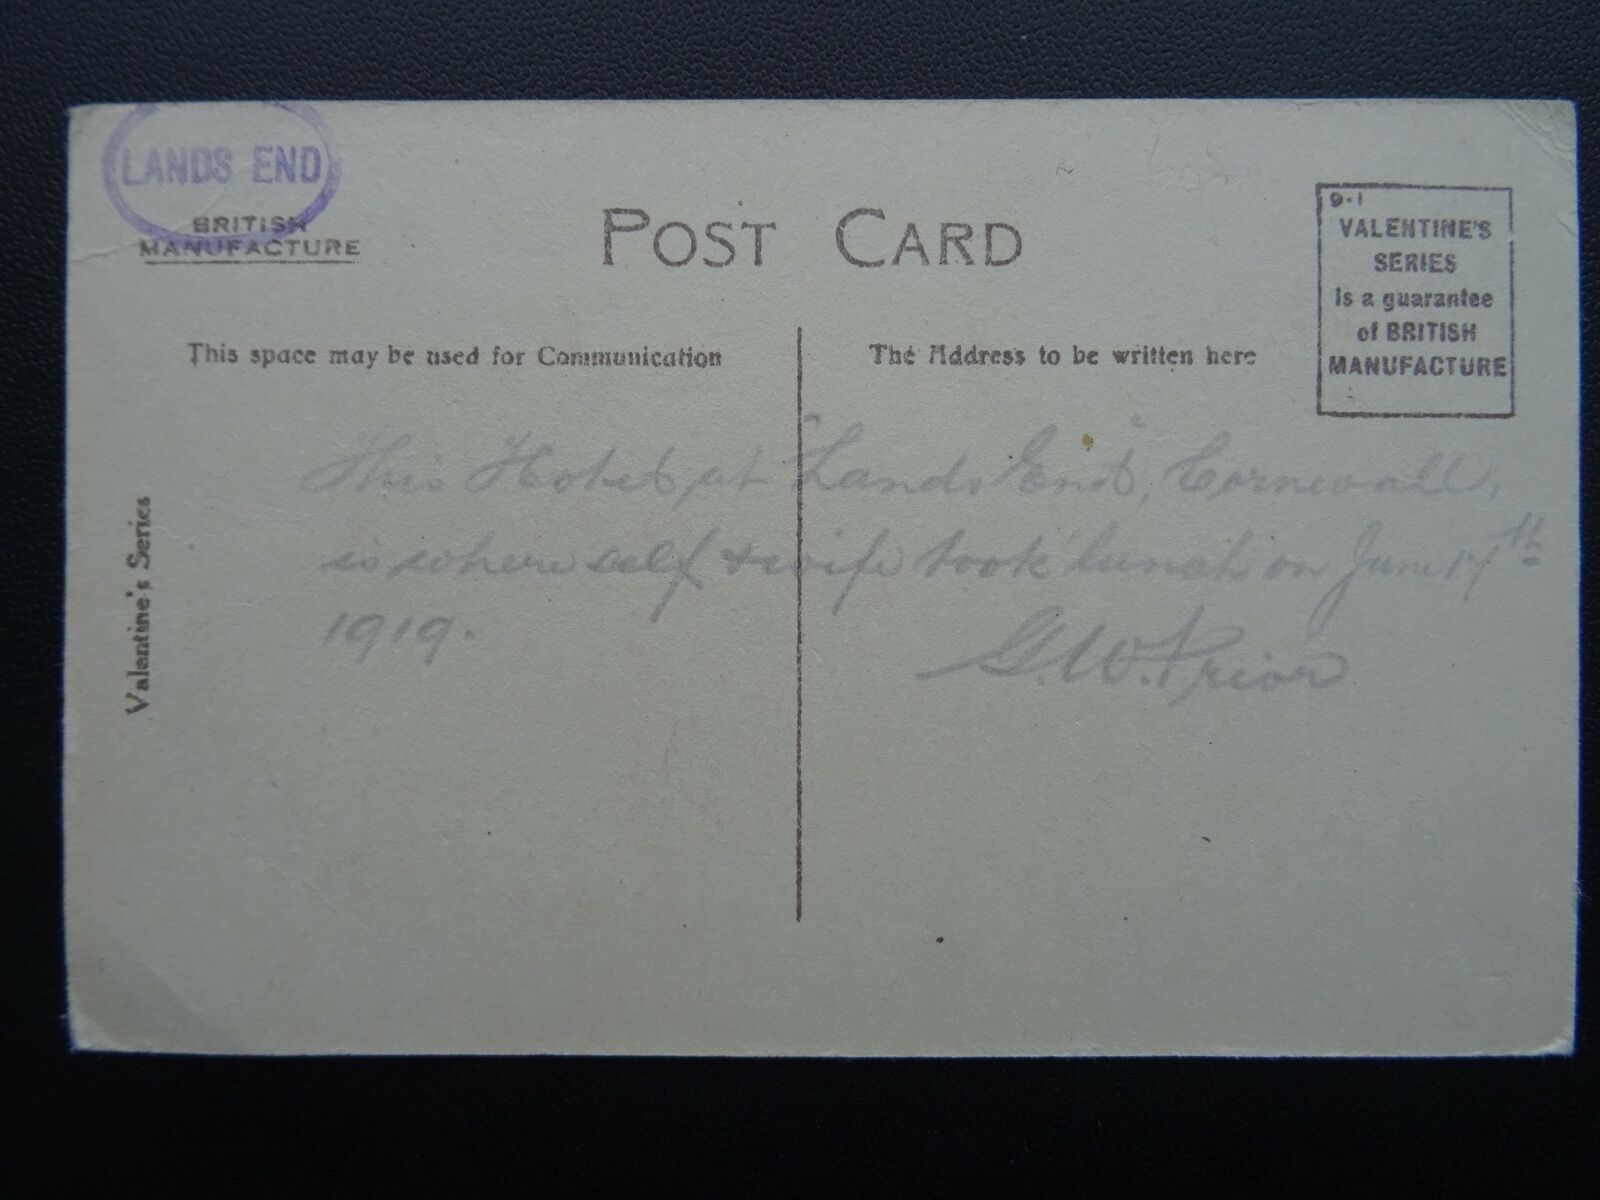 LANDS END
BRITISH
MANUFACTURE
POST CARD
9-1
VALENTINE'S
SERIES
is a guarantee
of BRITISH
MANUFACTURE
This space may be used for Communication
The Address to be written here
Valentine's Series
This Hotel, at "Lands End", Cornwall,
is where self & wife took lunch on June 17th
1919.
G. W. Prior